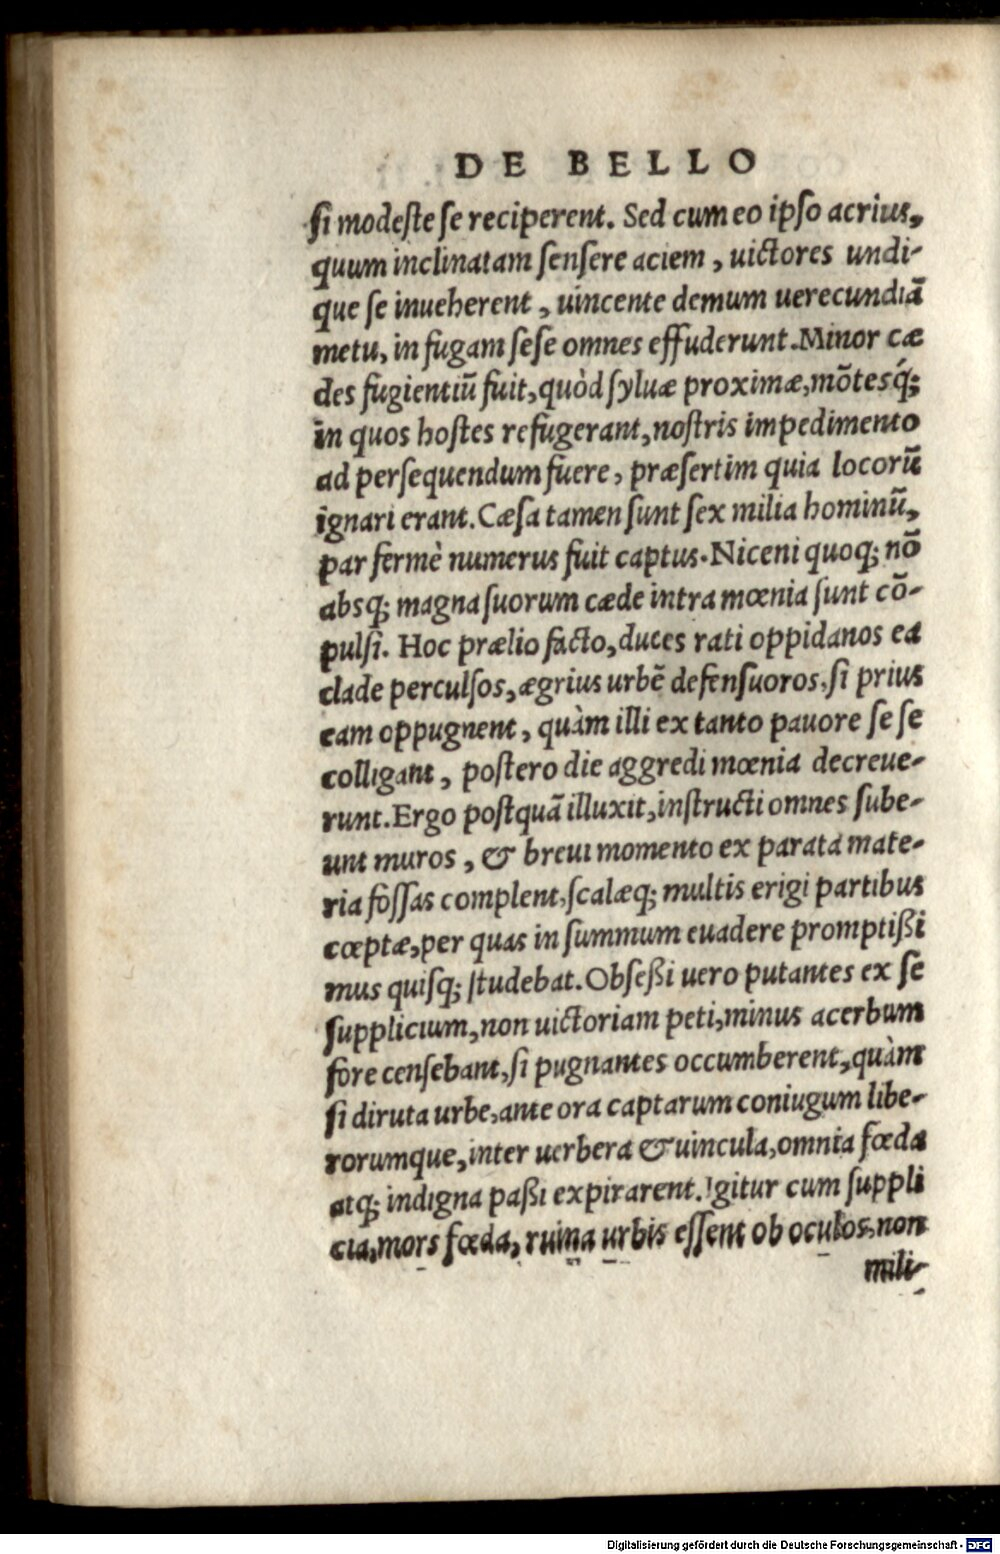 DE BELLO
si modeste se reciperent. Sed cum eo ipso acrius,
quum inclinatam sensere aciem, uictores undi-
que se inueherent, uincente demum uerecundiā
metu, in fugam sese omnes effuderunt. Minor cæ
des fugientiū fuit, quòd syluæ proximæ, mōtesq́;
in quos hostes refugerant, nostris impedimento
ad persequendum fuere, præsertim quia locorū
ignari erant. Cæsa tamen sunt sex milia hominū,
par fermè numerus fuit captus. Niceni quoq; nō
absq; magna suorum cæde intra mœnia sunt cō-
pulsi. Hoc prælio facto, duces rati oppidanos ea
clade perculsos, ægrius urbē defensuoros, si prius
eam oppugnent, quàm illi ex tanto pauore se se
colligant, postero die aggredi mœnia decreue-
runt. Ergo postquā illuxit, instructi omnes sube-
unt muros, & breui momento ex parata mate-
ria fossas complent, scalæq; multis erigi partibus
cœptæ, per quas in summum euadere promptißi
mus quisq; studebat. Obseßi uero putantes ex se
supplicium, non uictoriam peti, minus acerbum
fore censebant, si pugnantes occumberent, quàm
si diruta urbe, ante ora captarum coniugum libe-
rorumque, inter uerbera & uincula, omnia fœda
atq; indigna paßi expirarent. Igitur cum suppli
cia, mors fœda, ruina urbis essent ob oculos, non
mili-
Digitalisierung gefördert durch die Deutsche Forschungsgemeinschaft - DFG